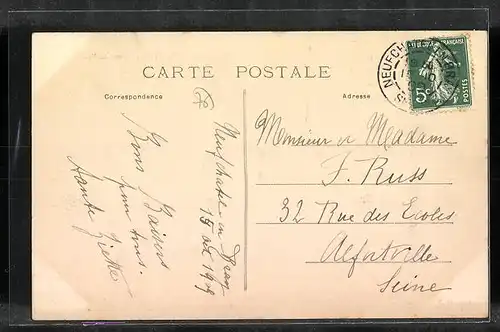 CARTE POSTALE
Correspondance
Adresse
NEUFCH
POSTES
5c
Neufchatel en Bray
15 oct 1909
Bons Baisers
pour tous.
Tante
Monsieur et Madame
F. Russ
32 Rue des Ecoles
Alfortville
Seine